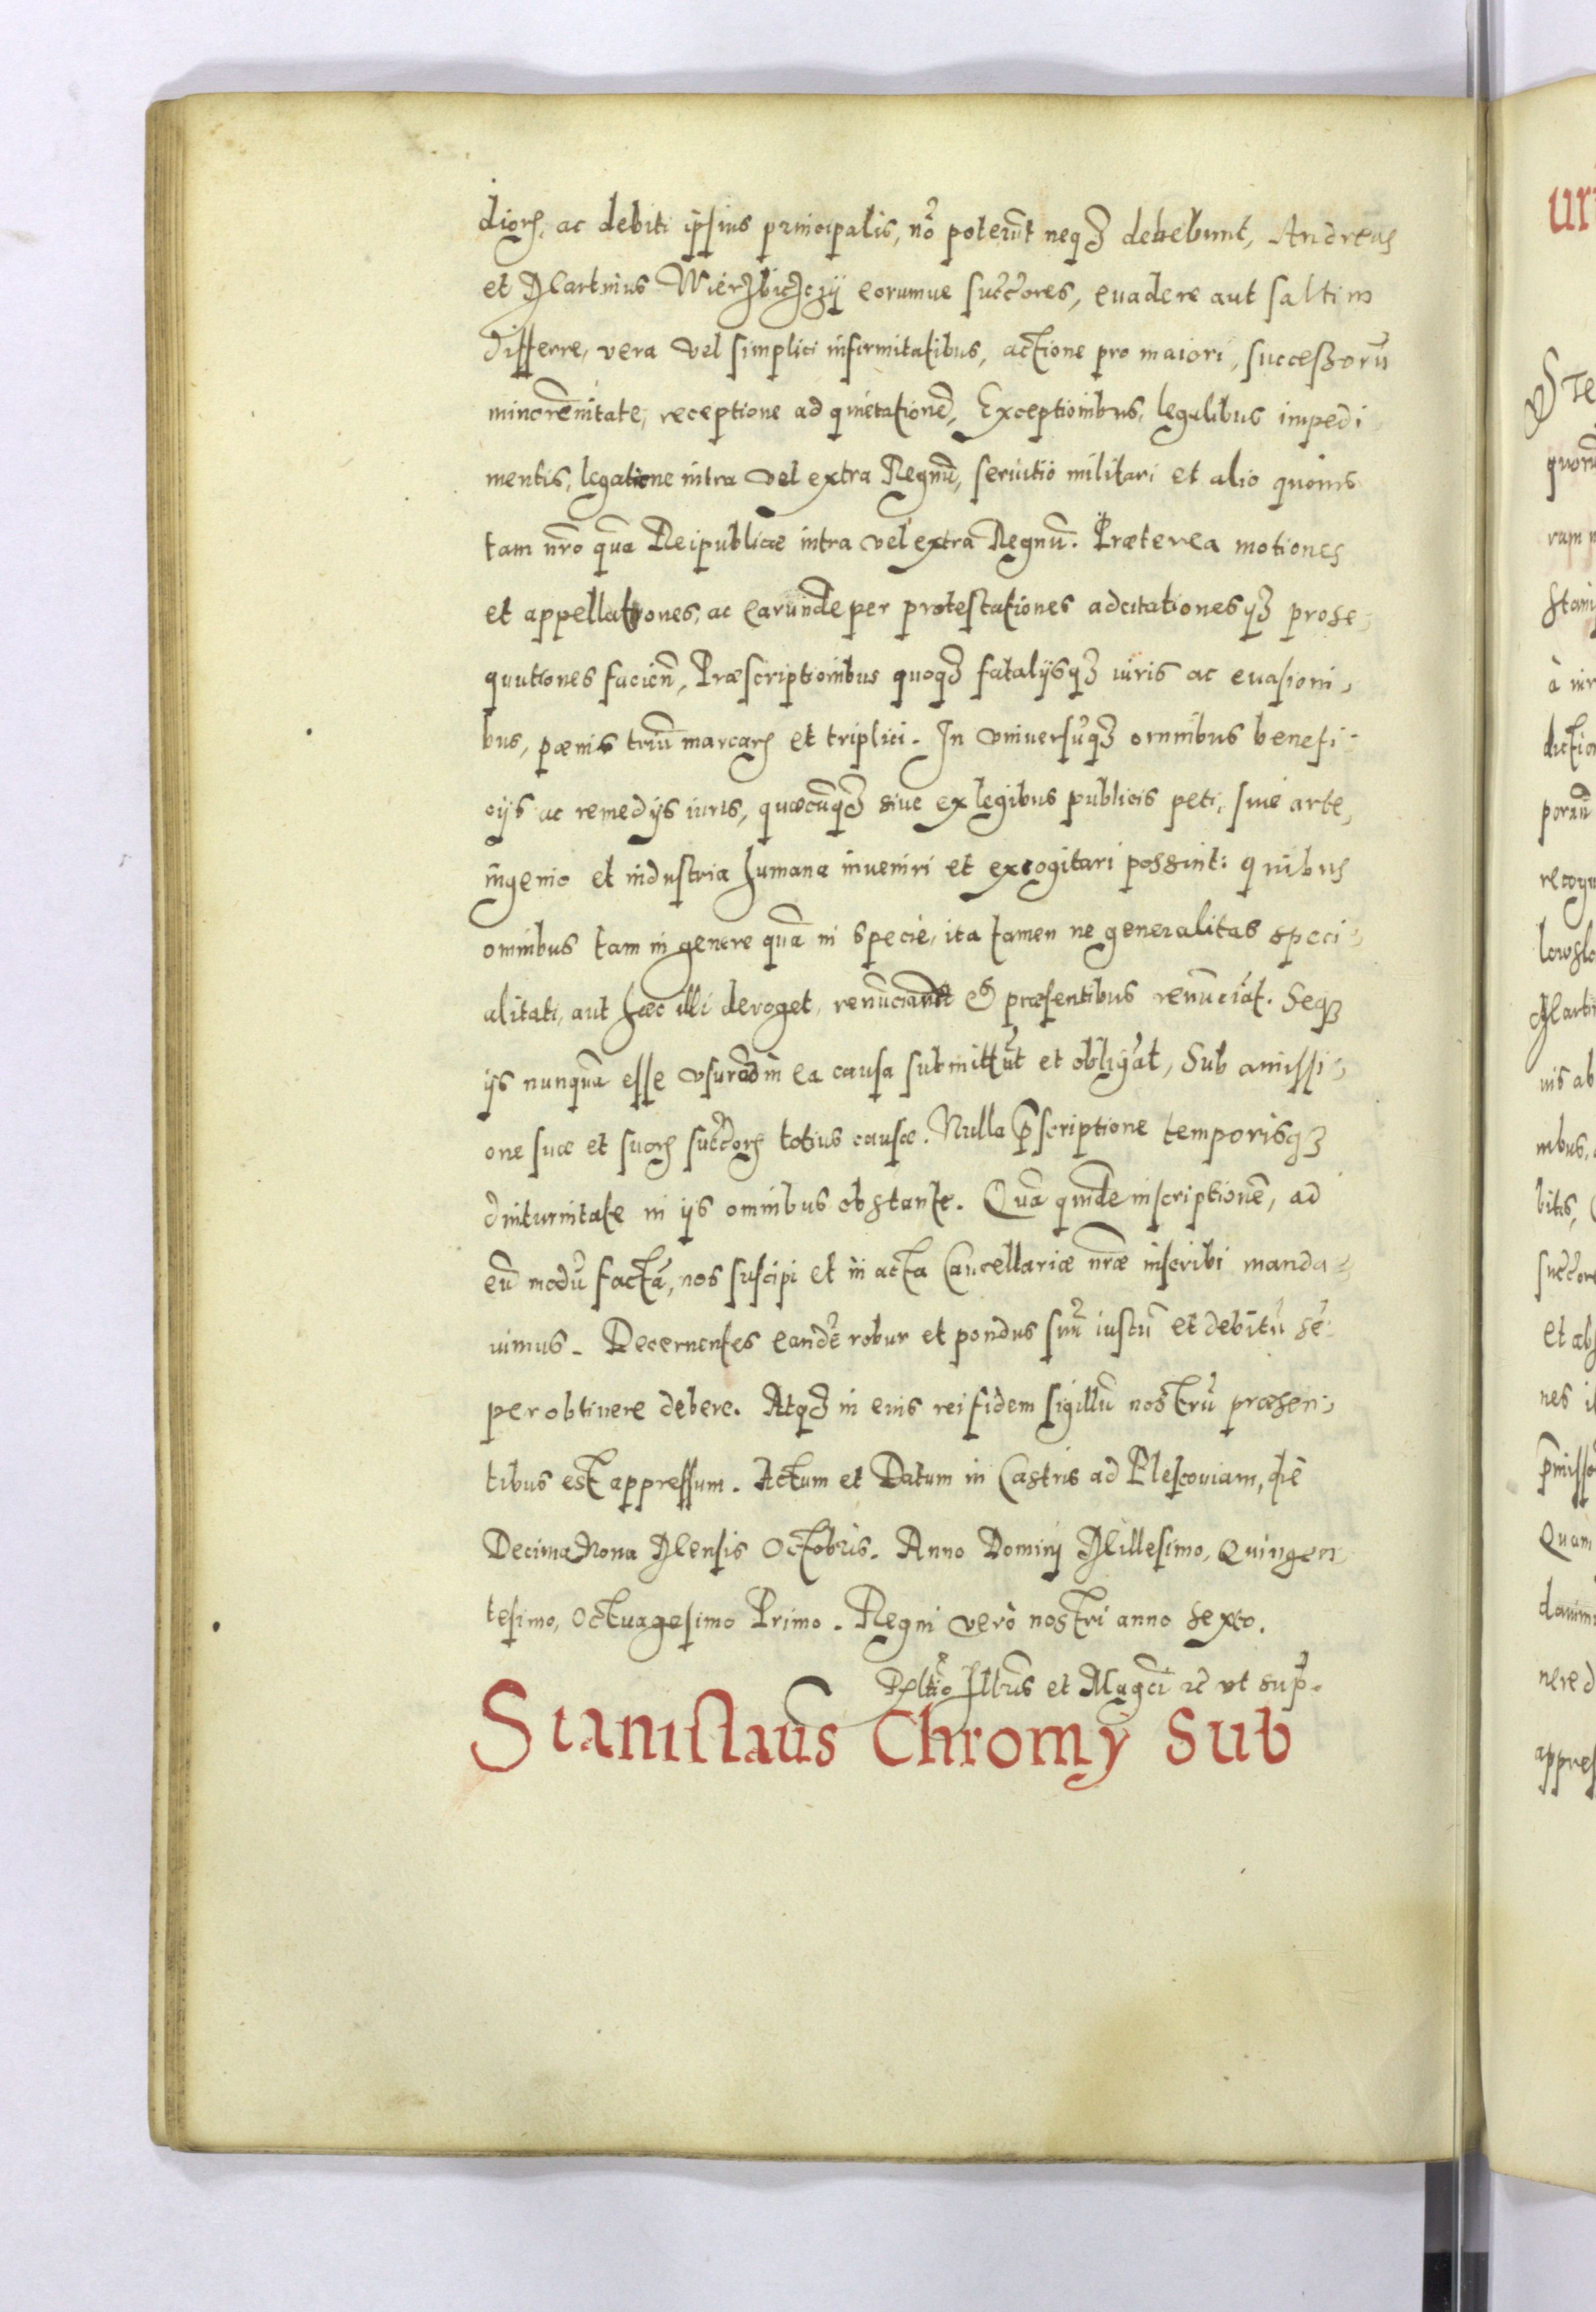 diorꝝ, ac debiti ipsius principalis, nõ poterũt neqꝫ debebunt, Andreas
et Martinus Wierzbiczczÿ eorumue succ̃ores, euadere aut saltim
differre, vera vel simplici infirmitatibus, actione pro maiori, successorũ
minorẽnitate, receptione ad quietationẽ, Exceptionibus, legalibus impedi
mentis, legatione intra vel extra Regnũ, seruitio militari et alio quouis
tam nr̃o quã Reipublicæ intra vel extra Regnũ. Præterea motiones
et appellationes, ac earundẽ per protestationes adcitationesqꝫ prose-
quutiones facien̄, Præscriptionibus quoqꝫ fatalijsqꝫ iuris ac euasioni-
bus, pœnis triũ marcarꝝ et triplici. In vniuersũqꝫ omnibus benefi-
cijs ac remedijs iuris, quæcũqꝫ siue ex legibus publicis peti, siue arte,
ingenio et industria humana inueniri et excogitari possint: quibus
omnibus tam in genere quã in specie, ita tamen ne generalitas speci-
alitati, aut hæc illi deroget, renũciandũ et præsentibus renũciãt. Seqꝫ
ijs nunquã esse vsuros in ea causa submittũt et obligãt, Sub amissi-
one suæ et suorꝝ succ̃orꝝ totius causæ. Nulla p̃scriptione temporisqꝫ
diuturnitate in ijs omnibus obstante. Quã quidẽ inscriptionẽ, ad
eũ modũ factã, nos suscipi et in acta Cancellariæ nr̃æ inscribi manda-
uimus. Decernentes eandẽ robur et pondus suũ iustũ et debitũ sẽ-
per obtinere debere. Atqꝫ in eius rei fidem sigillũ nostrũ præsen-
tibus est appressum. Actum et Datum in Castris ad Plescouiam, die
Decima Nona Mensis Octobris. Anno Domini Millesimo, Quingen
tesimo, Octuagesimo Primo. Regni vero nostri anno sexto.
Rel̃tio Ill̃ris et Mag̃ci ꝛc̃ vt sup̃.
Stanislaũs Chromÿ Sub